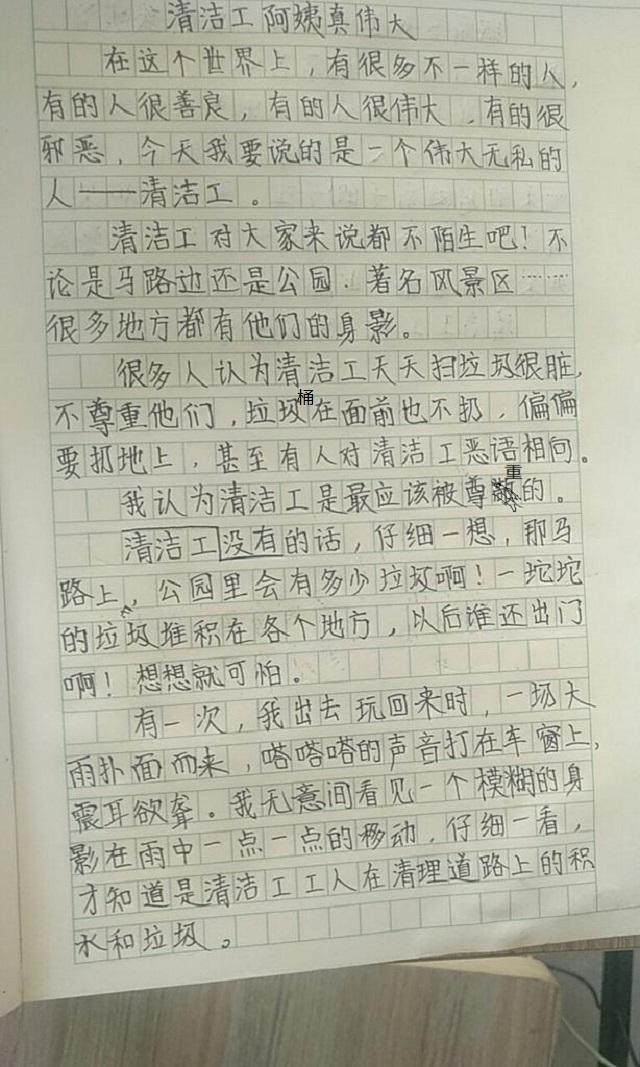 清洁工阿姨真伟大
在这个世界上，有很多不一样的人，
有的人很善良，有的人很伟大，有的很
邪恶，今天我要说的是一个伟大无私的
人——清洁工。
清洁工对大家来说都不陌生吧！不
论是马路边还是公园、著名风景区……
很多地方都有他们的身影。
很多人认为清洁工天天扫垃圾很脏，
桶
不尊重他们，垃圾在面前也不扔，偏偏
要扔地上，甚至有人对清洁工恶语相向。
重
我认为清洁工是最应该被尊敬的。
清洁工没有的话，仔细一想，那马
路上，公园里会有多少垃圾啊！一坨坨
的垃圾堆积在各个地方，以后谁还出门
啊！想想就可怕。
有一次，我出去玩回来时，一场大
雨扑面而来，嗒嗒嗒的声音打在车窗上，
震耳欲聋。我无意间看见一个模糊的身
影在雨中一点一点的移动，仔细一看，
才知道是清洁工工人在清理道路上的积
水和垃圾。